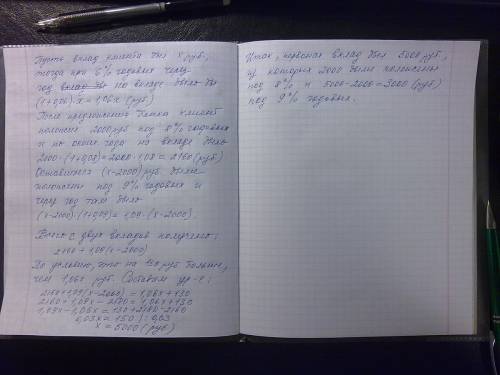 Пусть вклад клиента был x руб,
тогда при 6% годовых через
год на вкладе было бы
(1+0,06)·x = 1,06x (руб)
После предложения банка клиент
положил 2000 руб под 8% годовых
и по окон. года на вкладе было
2000·(1+0,08)=2000·1,08=2160 (руб)
Оставшиеся (x-2000) руб были
положены под 9% годовых и
через год там было
(x-2000)·(1+0,09)=1,09·(x-2000).
Всего с двух вкладов получено:
2160+1,09(x-2000)
По условию, это на 130 руб больше,
чем 1,06x руб. Составим ур-е:
2160+1,09(x-2000) = 1,06x+130
2160+1,09x-2180 = 1,06x+130
1,09x-1,06x = 130+2180-2160
0,03x = 150 |: 0,03
x = 5000 (руб)
Итак, первонач. вклад был 5000 руб,
из которых 2000 были положены
под 8% и 5000-2000=3000 (руб)
под 9% годовых.